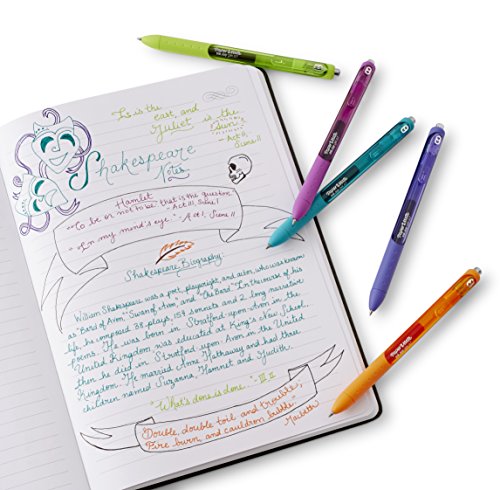 Is is the
east, and
Juliet is the
sun."
- Act II,
Scene II
Shakespeare
Notes
Hamlet
"To be or not to be that is the question."
- Act III, Scene I
"In my mind's eye." - Act I, Scene II
Shakespeare Biography
William Shakespeare was a poet, playwright, and actor, who was known
as "Bard of Avon," "Swan of Avon," and "The Bard." In the course of his
life, he composed 38 plays, 154 sonnets and 2 long narrative
poems. He was born in Stratford-upon-Avon in the
United Kingdom, was educated at King's New School,
then he died in Stratford-upon-Avon in the United
Kingdom. He married Anne Hathaway and had three
children named Suzanna, Hamnet and Judith.
"What's done is done." - III II
"Double, double toil and trouble,
Fire burn, and cauldron bubble."
Macbeth
Paper:Mate
Paper:Mate
Paper:Mate
Paper:Mate
Paper:Mate